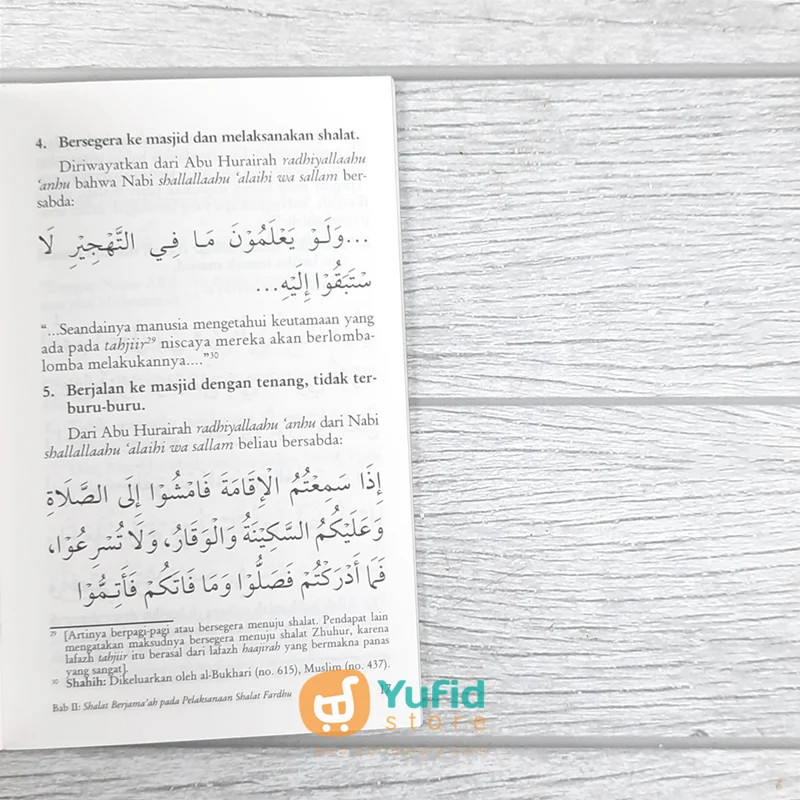 4. Bersegera ke masjid dan melaksanakan shalat.
Diriwayatkan dari Abu Hurairah radhiyallaahu
‘anhu bahwa Nabi shallallaahu ‘alaihi wa sallam ber-
sabda:
...وَلَوْ يَعْلَمُوْنَ مَا فِي التَّهْجِيْرِ لَا
سْتَبَقُوْا إِلَيْهِ...
“...Seandainya manusia mengetahui keutamaan yang
ada pada tahjiir²⁹ niscaya mereka akan berlomba-
lomba melakukannya....”³⁰
5. Berjalan ke masjid dengan tenang, tidak ter-
buru-buru.
Dari Abu Hurairah radhiyallaahu ‘anhu dari Nabi
shallallaahu ‘alaihi wa sallam beliau bersabda:
إِذَا سَمِعْتُمُ الْإِقَامَةَ فَامْشُوْا إِلَى الصَّلَاةِ
وَعَلَيْكُمُ السَّكِيْنَةُ وَالْوَقَارُ، وَلَا تُسْرِعُوْا،
فَمَا أَدْرَكْتُمْ فَصَلُّوْا وَمَا فَاتَكُمْ فَأَتِمُّوْا
²⁹ [Artinya berpagi-pagi atau bersegera menuju shalat. Pendapat lain
mengatakan maksudnya bersegera menuju shalat Zhuhur, karena
lafazh tahjiir itu berasal dari lafazh haajirah yang bermakna panas
yang sangat].
³⁰ Shahih: Dikeluarkan oleh al-Bukhari (no. 615), Muslim (no. 437).
Bab II: Shalat Berjama’ah pada Pelaksanaan Shalat Fardhu 17
Yufid
store